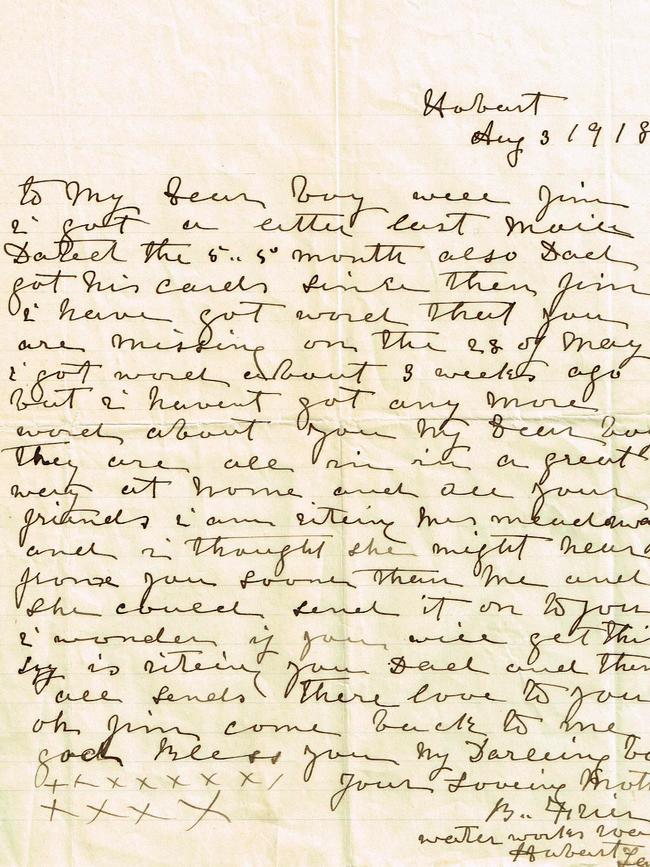 Hobart
Aug 3 1918
to My Dear boy well Jim
i got a letter last maile
Dated the 5.. 5 month also Dad
got his cards since then Jim
i have got word that you
are missing on the 28 of May
i got word about 3 weeks ago
but i havent got any more
word about you My Dear bo
they are all in in a great
way at home and all your
friends i am riteing Mrs
and i thought she might hear
from you sooner than Me and
she could send it on to you
i wonder if you will get thi
is riteing you Dad and them
all sends there love to you
oh Jim come back to me
god Bless you My Darleing bo
+ + x x x x x x / your Loveing Moth
+ x x x B..
water works roa
Hobart